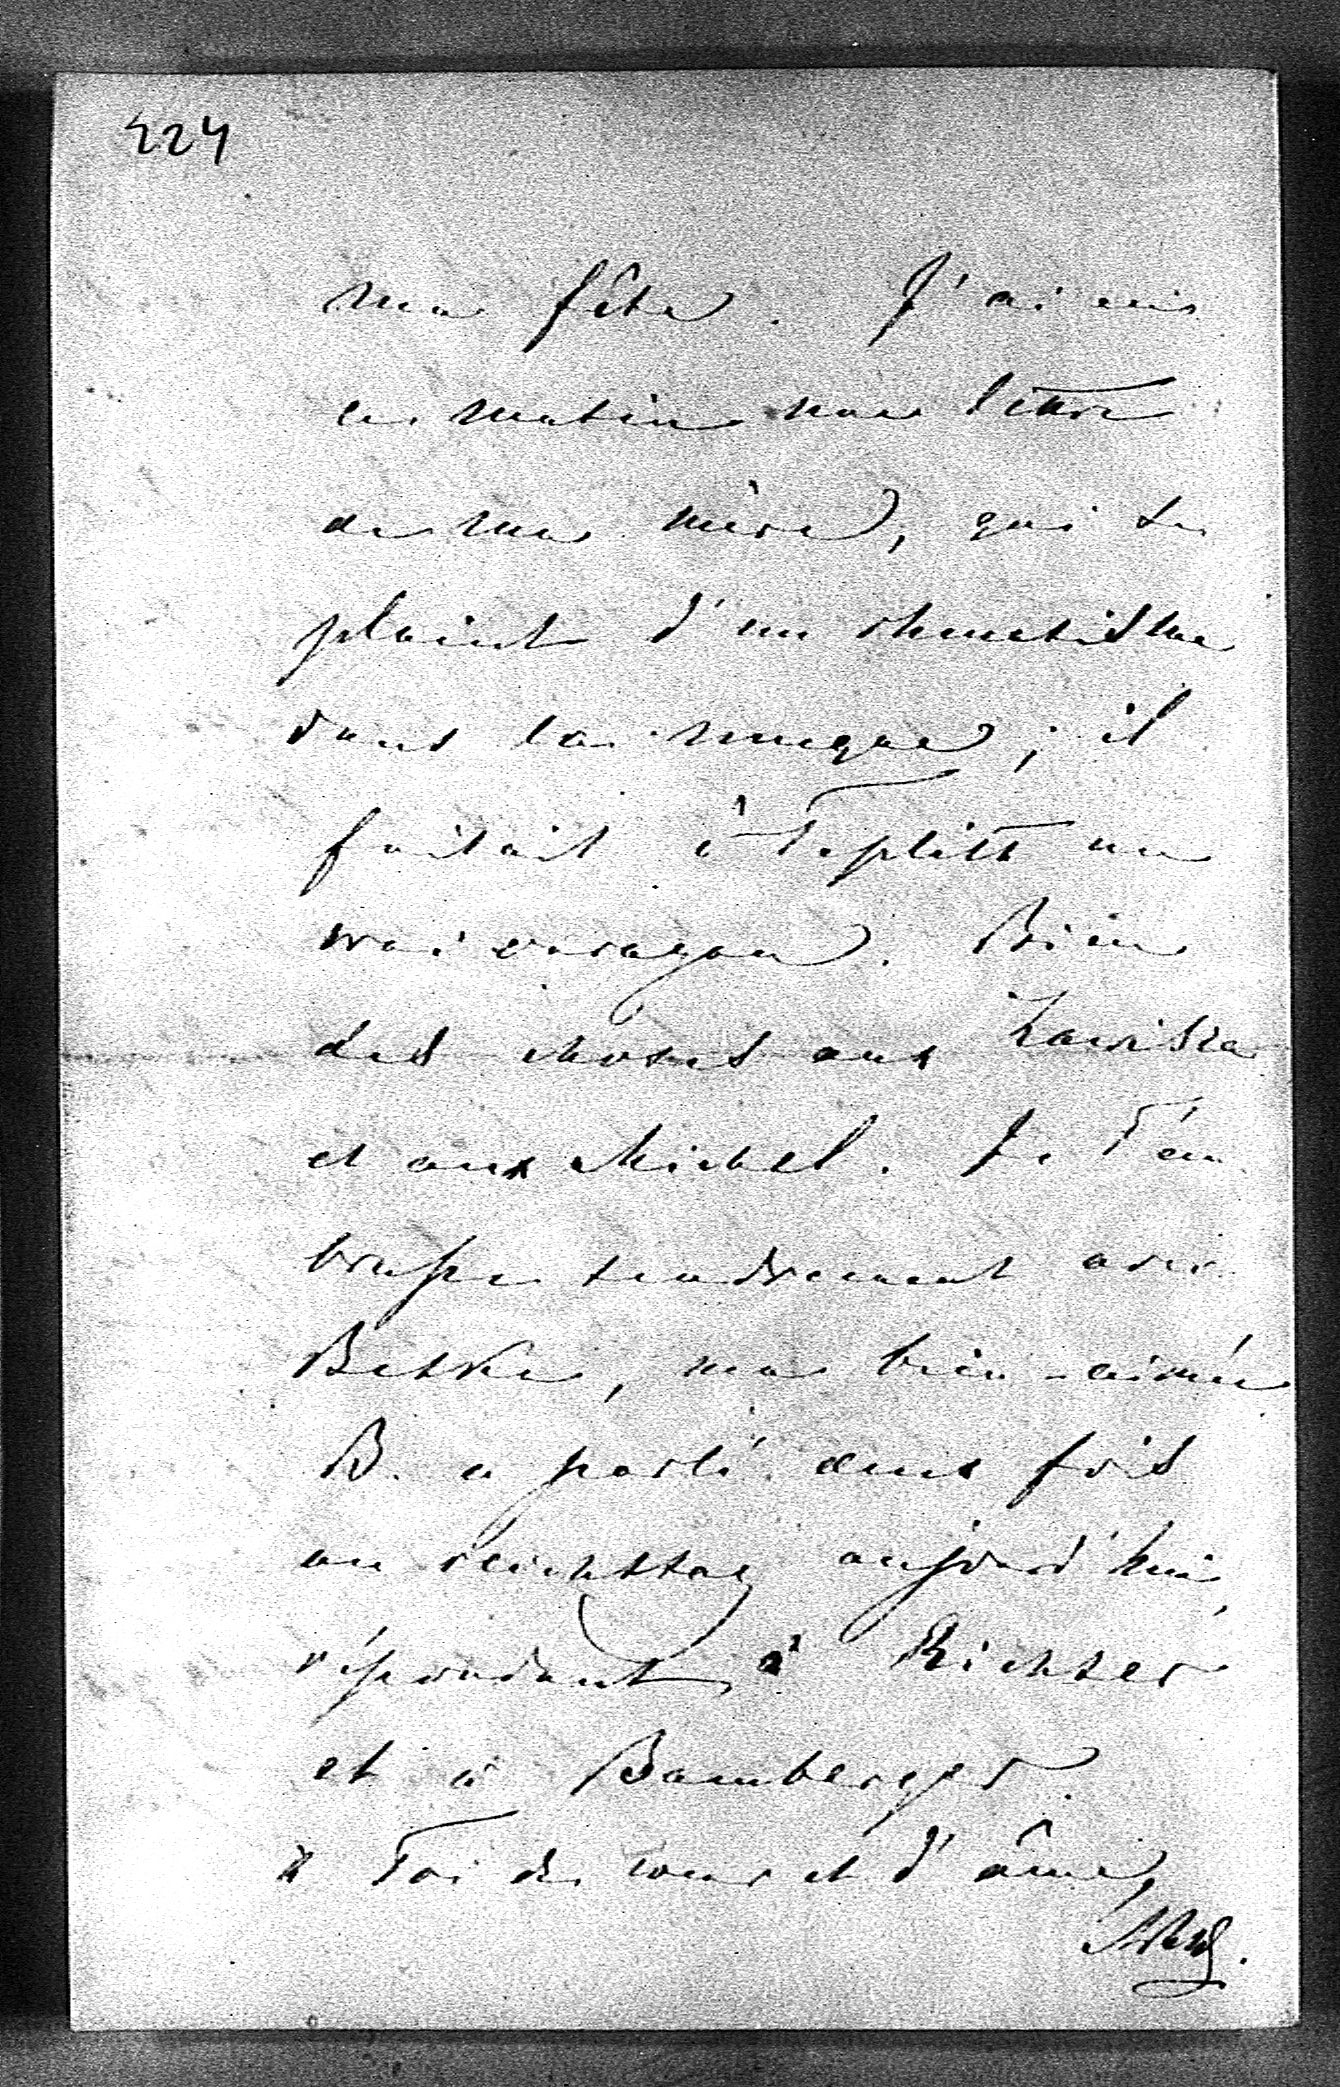 224
ma fête. J'ai eu
ce matin une lettre
de ma mère, qui se
plaint d'un rhumatisme
dans la nuque; il
faisait à Teplitz un
vrai ouragan. Bien
des choses aux Zawisza
et aux Michel. Je T'em
brasse tendrement avec
Betka, ma bien-aimée
B. a parlé deux fois
au reichstag aujourd'hui,
répondant à Richter
et à Bamberger.
à Toi de cœur et d'âme,